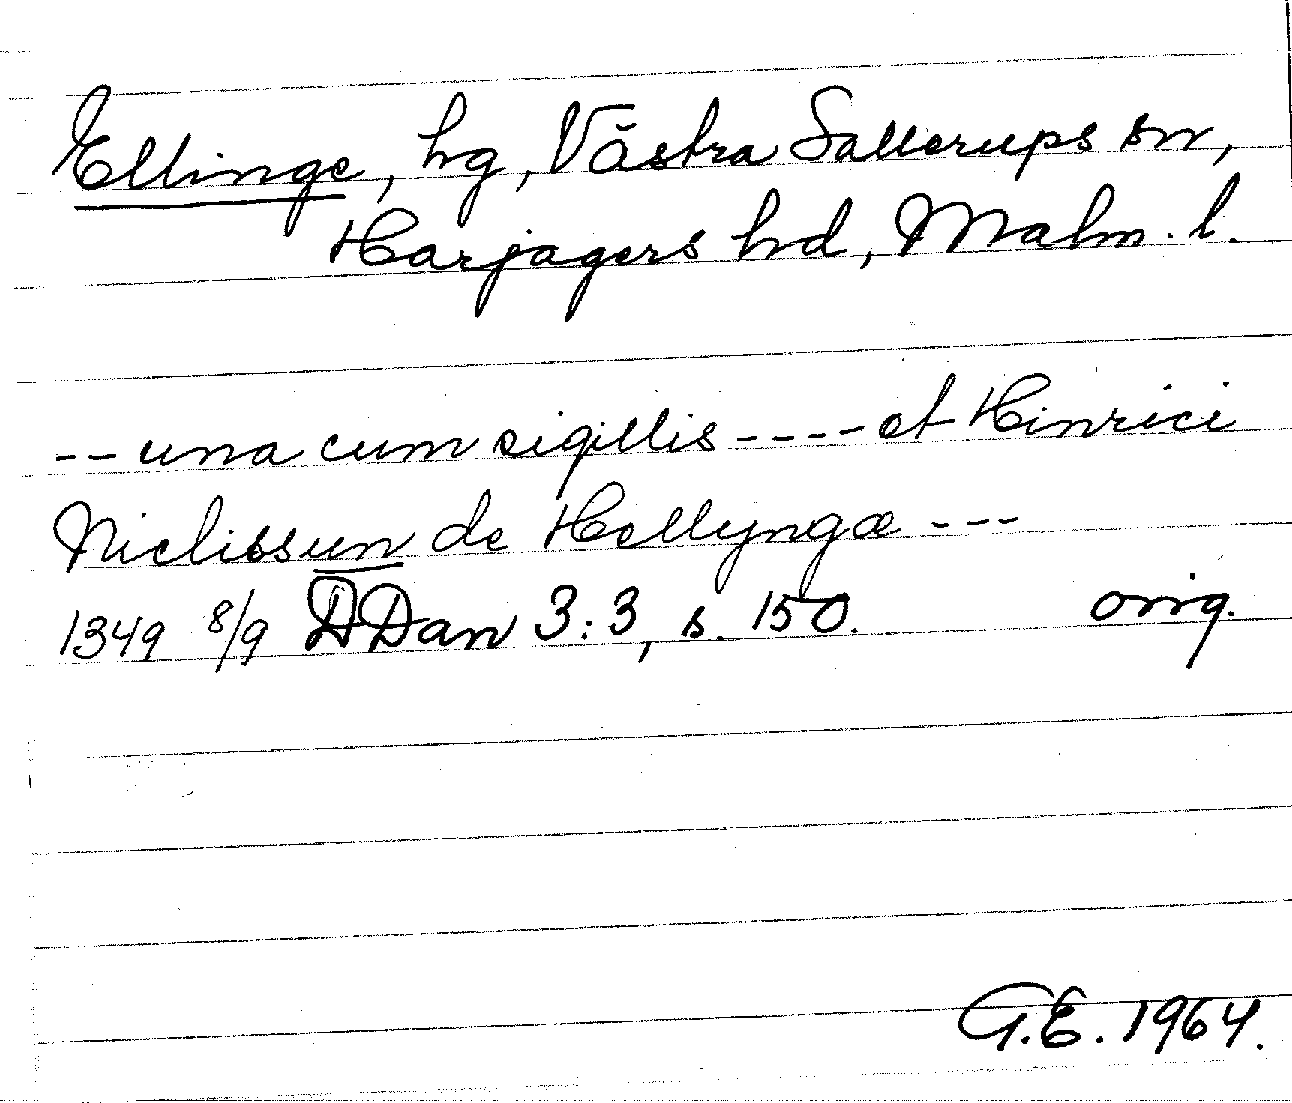 Ellinge, hg, Västra Sallerups sn,
Harjagers hd, Malm. l.
-- una cum sigillis ---- et Hinrici
Niclissun de Hellyngæ ---
1349 8/9 DDan 3:3, s. 150. orig.
G.E. 1964.